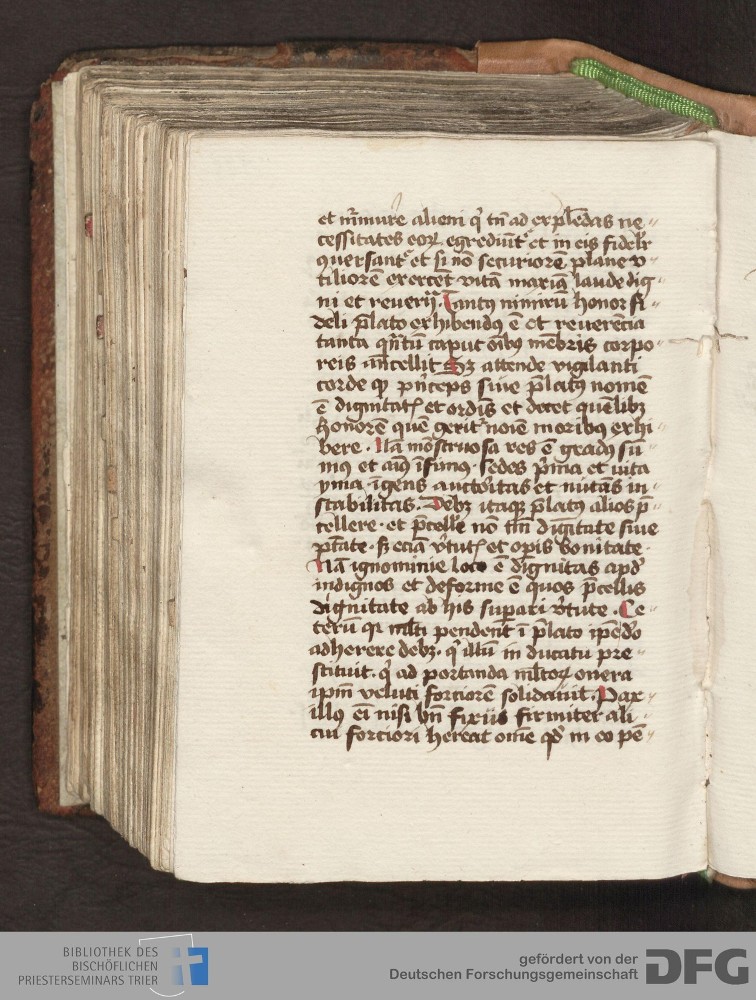 et mīmure alieni qͥ tn̄ ad expłēdas ne〃
cessitates eoꝝ egrediūt᷑ et in eis fidelr̄
ꝯuersant᷑ et si nō securiorē plane v〃
tiliorē exercēt vitā maxīa laude dig〃
ni et reuerīͣ. Tantꝰ nimirū honor fi〃
deli p̄lato exhibendꝰ ē et reuerēcia
tanta qn̄tū caput oībꝫ mēbris corpo〃
reis an̄cellit Sꝫ attende vigilanti
corde ꝙ pn̄ceps siue p̄latꝰ nomē
ē dignitatꝭ et ordīs et decet quēlibꝫ
honorē quē gerit noīe moribꝫ exhi〃
bere. Nā mōstruosa res ē gradꝰ sū〃
mꝰ et aīꝰ īfimꝰ. sedes p̄ma et vita
yma. īgens auctoͥtas et nutās in〃
stabilitas. Debꝫ itaqꝫ p̄latꝰ alios p̄〃
cellere. et p̄celle nō tm̄ dignitate siue
ptāte. sꝫ eciā v̄tutꝭ et opis bonitate.
Nā ignominie loco ē dignitas apd̄
indignos et deforme ē quos p̄cellis
dignitate ab his supari v̄tute. Ce〃
terū qꝛ ml̄ti pendent ī p̄lato ip̄e dō
adherere debꝫ. qͥ illū in ducatu pre〃
stituit. qͥ ad portanda ml̄toꝝ onera
ipm̄ veluti forciorē solidauit. Pax〃
illꝰ ei nisi bn̄ fixus firmiter ali〃
cui forciori hereat om̄e qd̄ in eo pē〃
BIBLIOTHEK DES
BISCHÖFLICHEN
PRIESTERSEMINARS TRIER
gefördert von der
Deutschen Forschungsgemeinschaft
DFG